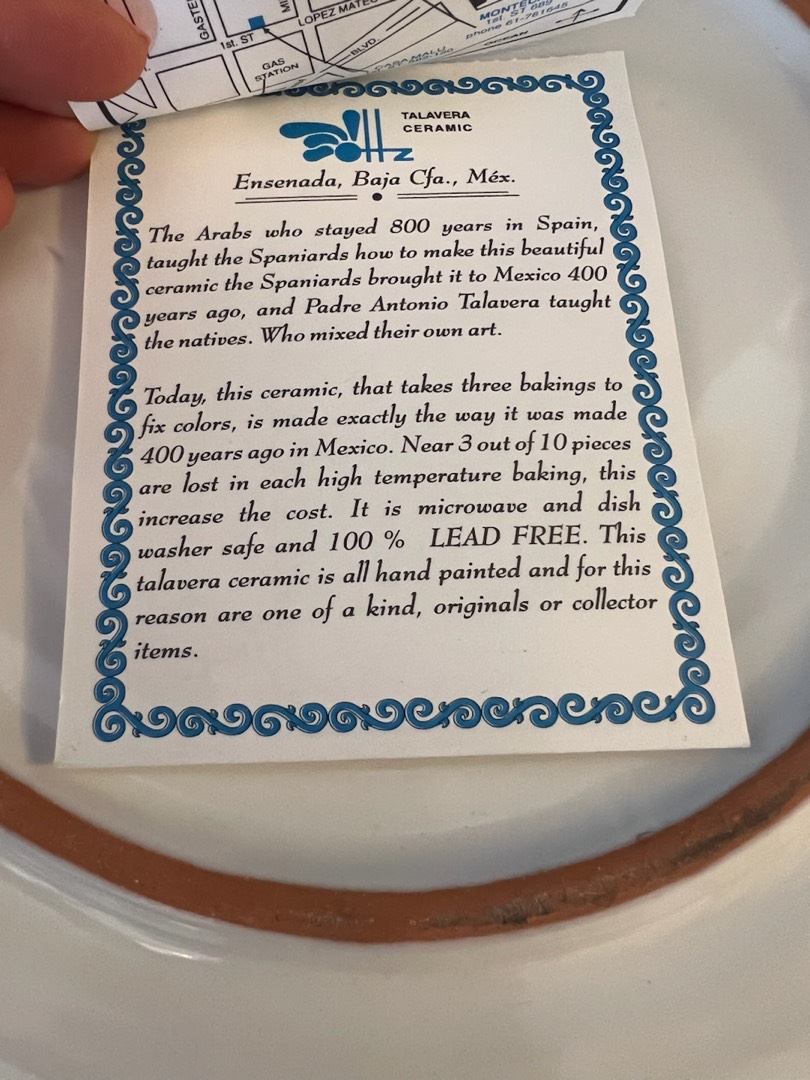 GASTE
MI
LOPEZ MATEO
1st. ST
GAS
STATION
BLVD
MONTE
1st. ST 689
phone 61-781645
OCEAN
TALAVERA
CERAMIC
Ensenada, Baja Cfa., Méx.
The Arabs who stayed 800 years in Spain,
taught the Spaniards how to make this beautiful
ceramic the Spaniards brought it to Mexico 400
years ago, and Padre Antonio Talavera taught
the natives. Who mixed their own art.
Today, this ceramic, that takes three bakings to
fix colors, is made exactly the way it was made
400 years ago in Mexico. Near 3 out of 10 pieces
are lost in each high temperature baking, this
increase the cost. It is microwave and dish
washer safe and 100 % LEAD FREE. This
talavera ceramic is all hand painted and for this
reason are one of a kind, originals or collector
items.